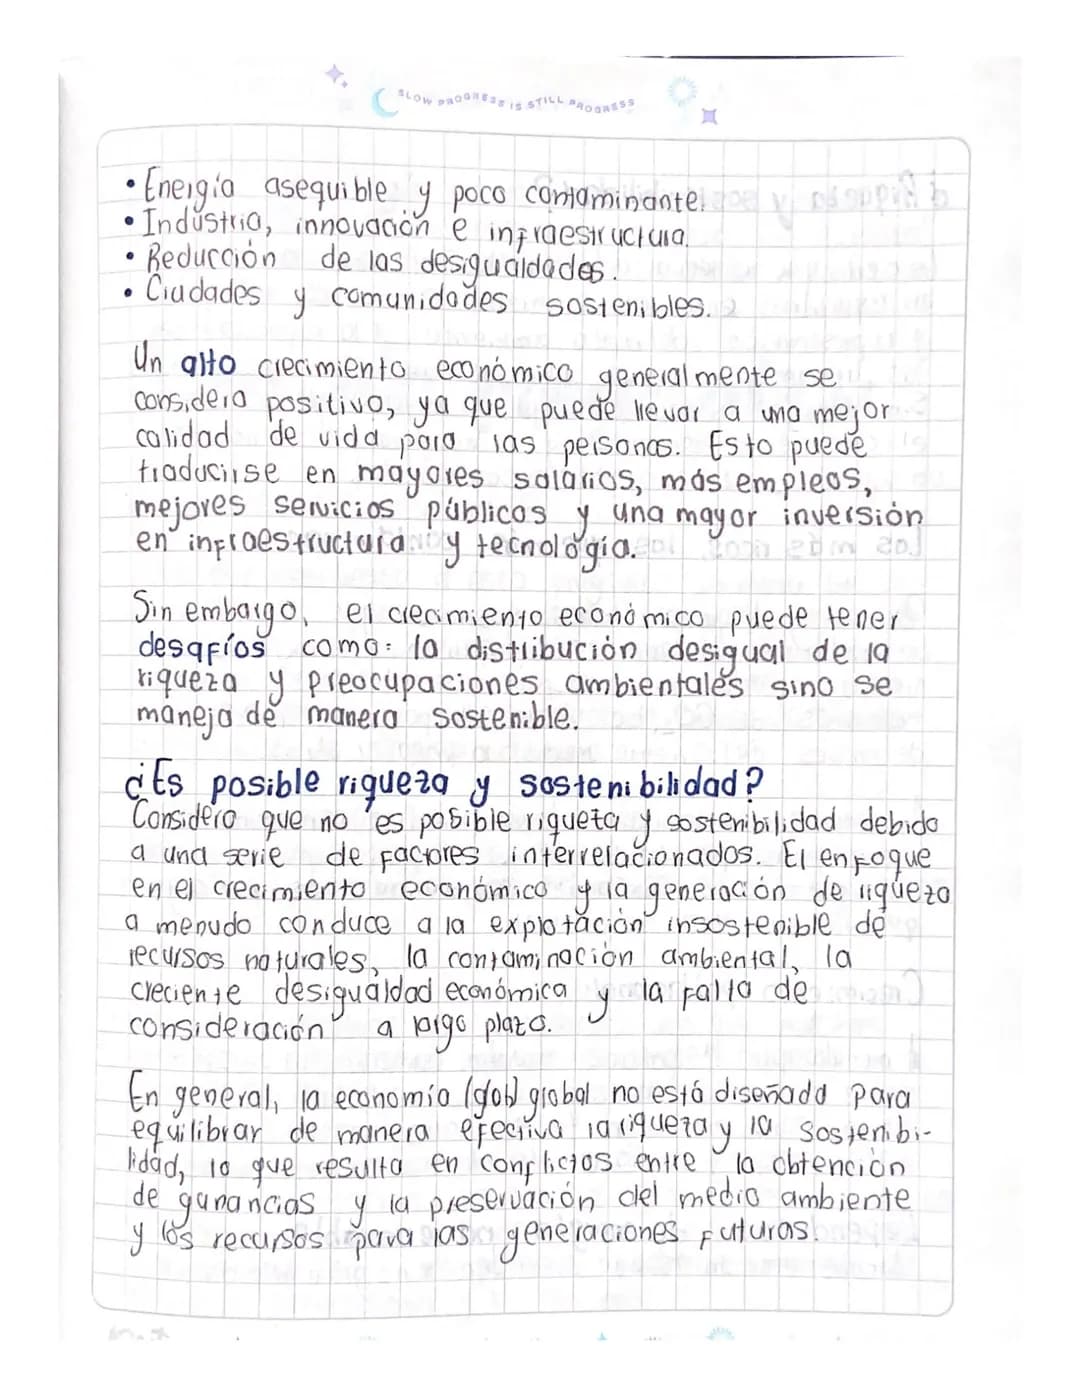 SLOW PROGRESS IS STILL PROGRESS
• Energía asequible y poco contaminante.
• Indústria, innovación e infraestructura.
• Reducción de las desigualdades.
• Ciudades y comunidades sostenibles.
Un alto crecimiento económico generalmente se
considera positivo, ya que puede llevar a una mejor
calidad de vida para las personas. Esto puede
traducirse en mayores salarios, más empleos,
mejores servicios públicos y una mayor inversión
en infraestructura y tecnología.
Sin embargo, el crecimiento económico puede tener
desafíos como: la distribución desigual de la
riqueza y preocupaciones ambientales sino se
maneja de manera sostenible.
¿Es posible riqueza y sostenibilidad?
Considero que no es posible riqueza y sostenibilidad debido
a una serie de factores interrelacionados. El enfoque
en el crecimiento económico y la generación de riqueza
a menudo conduce a la explotación insostenible de
recursos naturales, la contaminación ambiental, la
creciente desigualdad económica y la falta de
consideración a largo plazo.
En general, la economía (glob) global no está diseñada para
equilibrar de manera efectiva la riqueza y la sostenibi-
lidad, lo que resulta en conflictos entre la obtención
de ganancias y la preservación del medio ambiente
y los recursos para las generaciones futuras.